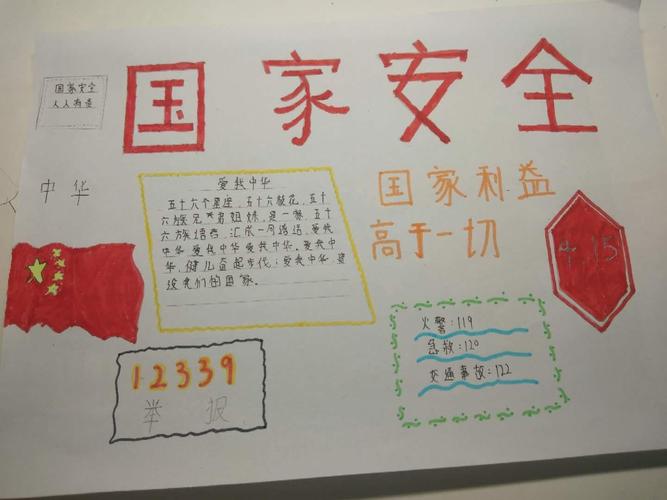 国家安全
国家安全
人人有责
中华
爱我中华
五十六个星座,五十六枝花,五十
六族兄弟姐妹,是一家,五十
六族语言,汇成一句话,爱我
中华 爱我中华 爱我中华。爱我中
华,健儿奋起步伐;爱我中华 建
设我们的国家。
国家利益
高于一切
4.15
12339
举报
火警:119
急救:120
交通事故:122